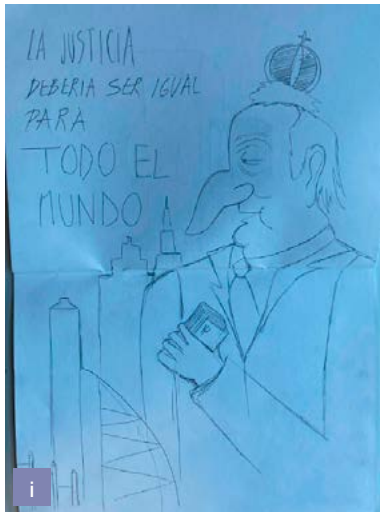 LA JUSTICIA
DEBERIA SER IGUAL
PARA
TODO EL
MUNDO
i